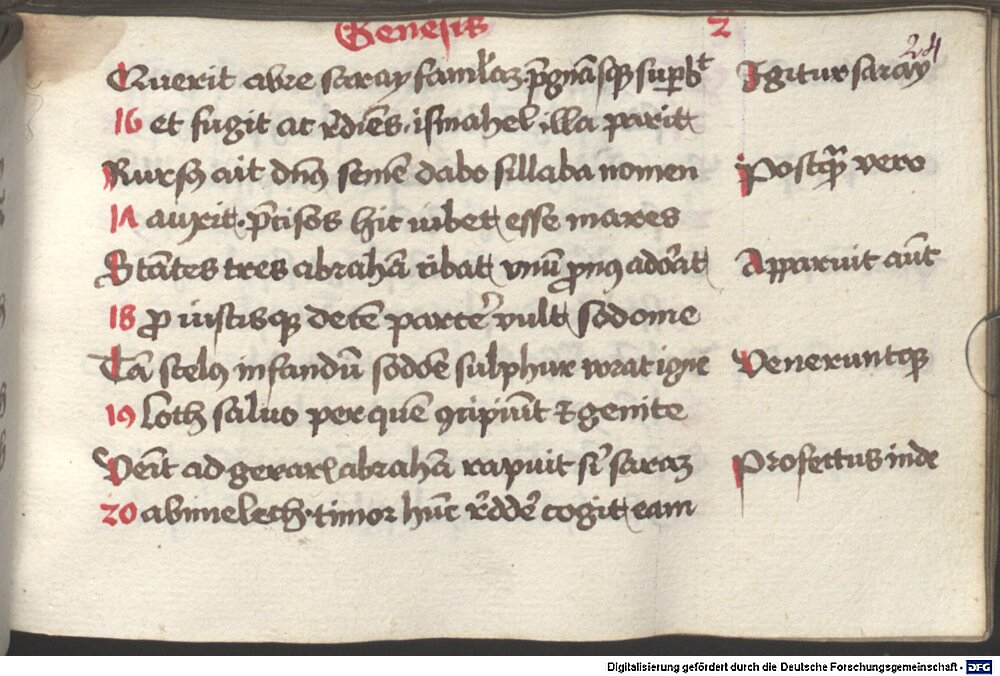 Genesis 2
24
Querit abre saray famulaz p̄gnās q̨ suꝑbᵗ Igitur saray
16 et fugit ac r̄diēs ismahel illa parit
Rursꝫ ait dn̄s semē dabo sillaba nomen Postqꝫ vero
17 auxit p̄cisos hic iubet esse mares
Stātes tres abrahā cibat vnū ꝓnꝰ adorat Apparuit aūt
18 ꝓ iustisqꝫ decē parcēˀ vult sodome
Tā scelꝰ infandū sodōe sulphur vorat igne Veneruntqꝫ
19 loth saluo per quē ꝯcipiūt ⁊ genite
Venit ad gerar abrahā rapuit sˀ saraz Profectus inde
20 abimelech timor hūc r̄ddēˀ cogit eam
Digitalisierung gefördert durch die Deutsche Forschungsgemeinschaft - DFG